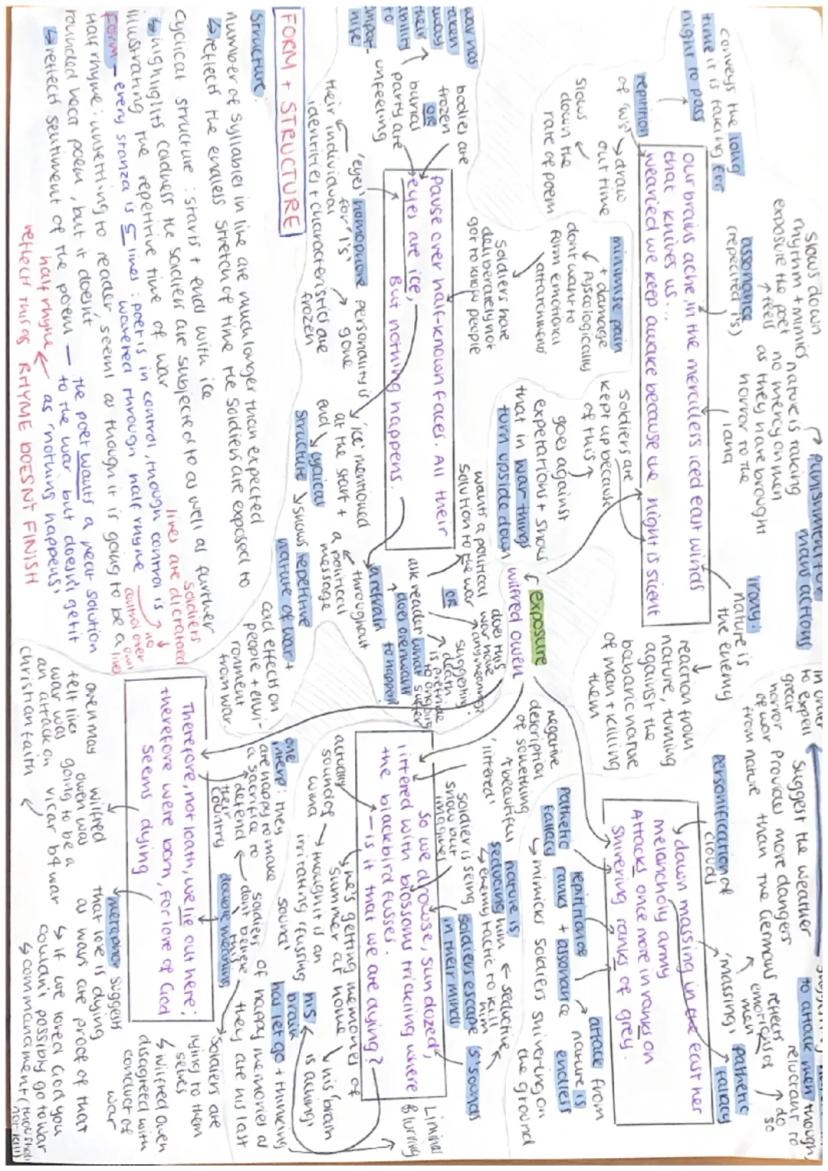 slows down
rhythm + mimics
exposure the poet
feels
assonance
(repeated i's)
conveys the long
time it is taking for
night to pass
repitition
of 'ws'
draw
out time
slows
down the
rate of poem
nature is taking
no mercy on men
as they have brought
horror to the
land
punishment for
mans actions
irony:
nature is
the enemy
reaction from
nature, turning
against the
babaric nature
of man + killing
them
our brains ache, in the merciless iced east winds
that knives us...
wearied we keep awake because the night is silent
minimise pain
+ damage
Physcologically
dont want to
form emotional
attatchment
soldiers have
deliberately not
got to know people
soldiers are
kept up because
of this
goes against
expetations + shows
that in war things
turn upside down
war has
taken
away
their
ability
to
bodies are
frozen
OR
burial
party are
unfeeling
Pause over half-known faces. All their
eyes are ice,
But nothing happens.
'eyes' homophone
for 'I's'
their individual
identities + characteristics are
frozen
personality is
gone
'ice' mentioned
at the start +
end
cyclical
structure
shows repetitive
nature of war +
refrain
throughout
a political
message
wants a political
solution to the war
OR
ask reader what
does owen want
to happen
does this
war have
any meaning?
suggesting
death
exposure
wilfred owen
FORM + STRUCTURE
Structure
number of syllabled in line are much longer than expected
↳ reflect the endless stretch of time the soldiers are exposed to
Cyclical structure : starts + ends with ice
↳ highlights coldness the soldiers are subjected to as well as further
illustrating the repetitive time of war
soldiers
lives are dictated
no
control over
lives
form - every stanza is 5 lines : poet is in control, though control is
wavered through half rhyme
Half rhyme : unsettling to reader seems as though it is going to be a
rounded near poem, but it doesn't
the poet wants a neat solution
↳ reflect sentiment of the poem — to the war but doesn't get it
half rhyme ← as 'nothing happens'
reflect this RHYME DOESNT FINISH
in order
to expell
great
horror
of war
from nature
Suggest the weather
Provides more dangers
than the Germans
to attack men though,
reluctant to
do
so
reflects
emotions of
men
personification of
clouds
'massing'
pathetic
fallacy
dawn massing in the east her
melancholy army
Attacks once more in ranks on
shivering ranks of grey.
Pathetic
fallacy
repitition of
ranks + assonance
mimicks soldiers shivering on
the ground
attack from
nature is
endless
negative
description
of something
beautiful
'littered'
soldier is seeing
snow but
imagines
nature is
seducing him
↳ enemy tactic to kill
him
seductive
's' sounds
soldiers escape
in their minds
So we drowse, sun dozed,
littered with blossoms trickling where
the blackbird fusses.
— is it that we are dying?
Liminal
Blurring
actually
sound of
wind
he's getting memories of
summer at home
thought it an
irritating 'fussing'
sound
his brain
is dying
his
brain
has let go + thinking
of happy memories as
they are his last
cold effects on
people + envi-
ronment
from war
one
interp: they
are happy to make
a sacrifice to
defend
their
country
soldier
dont believe
this
double meaning
soldiers are
lying to them
selves
↳ wilfred owen
disagreed with
conduct of
war
Therefore, not loath, we lie out here;
therefore were born, For love of God
seems dying
owen may
felt like
war was
an attack on
christian faith
wilfred
owen was
going to be a
vicar b4 war
metaphor suggests
that love is dying
as wars are proof of that
↳ if we loved God you
couldn't possibly go to war
↳ commandment (thou shall
not kill)